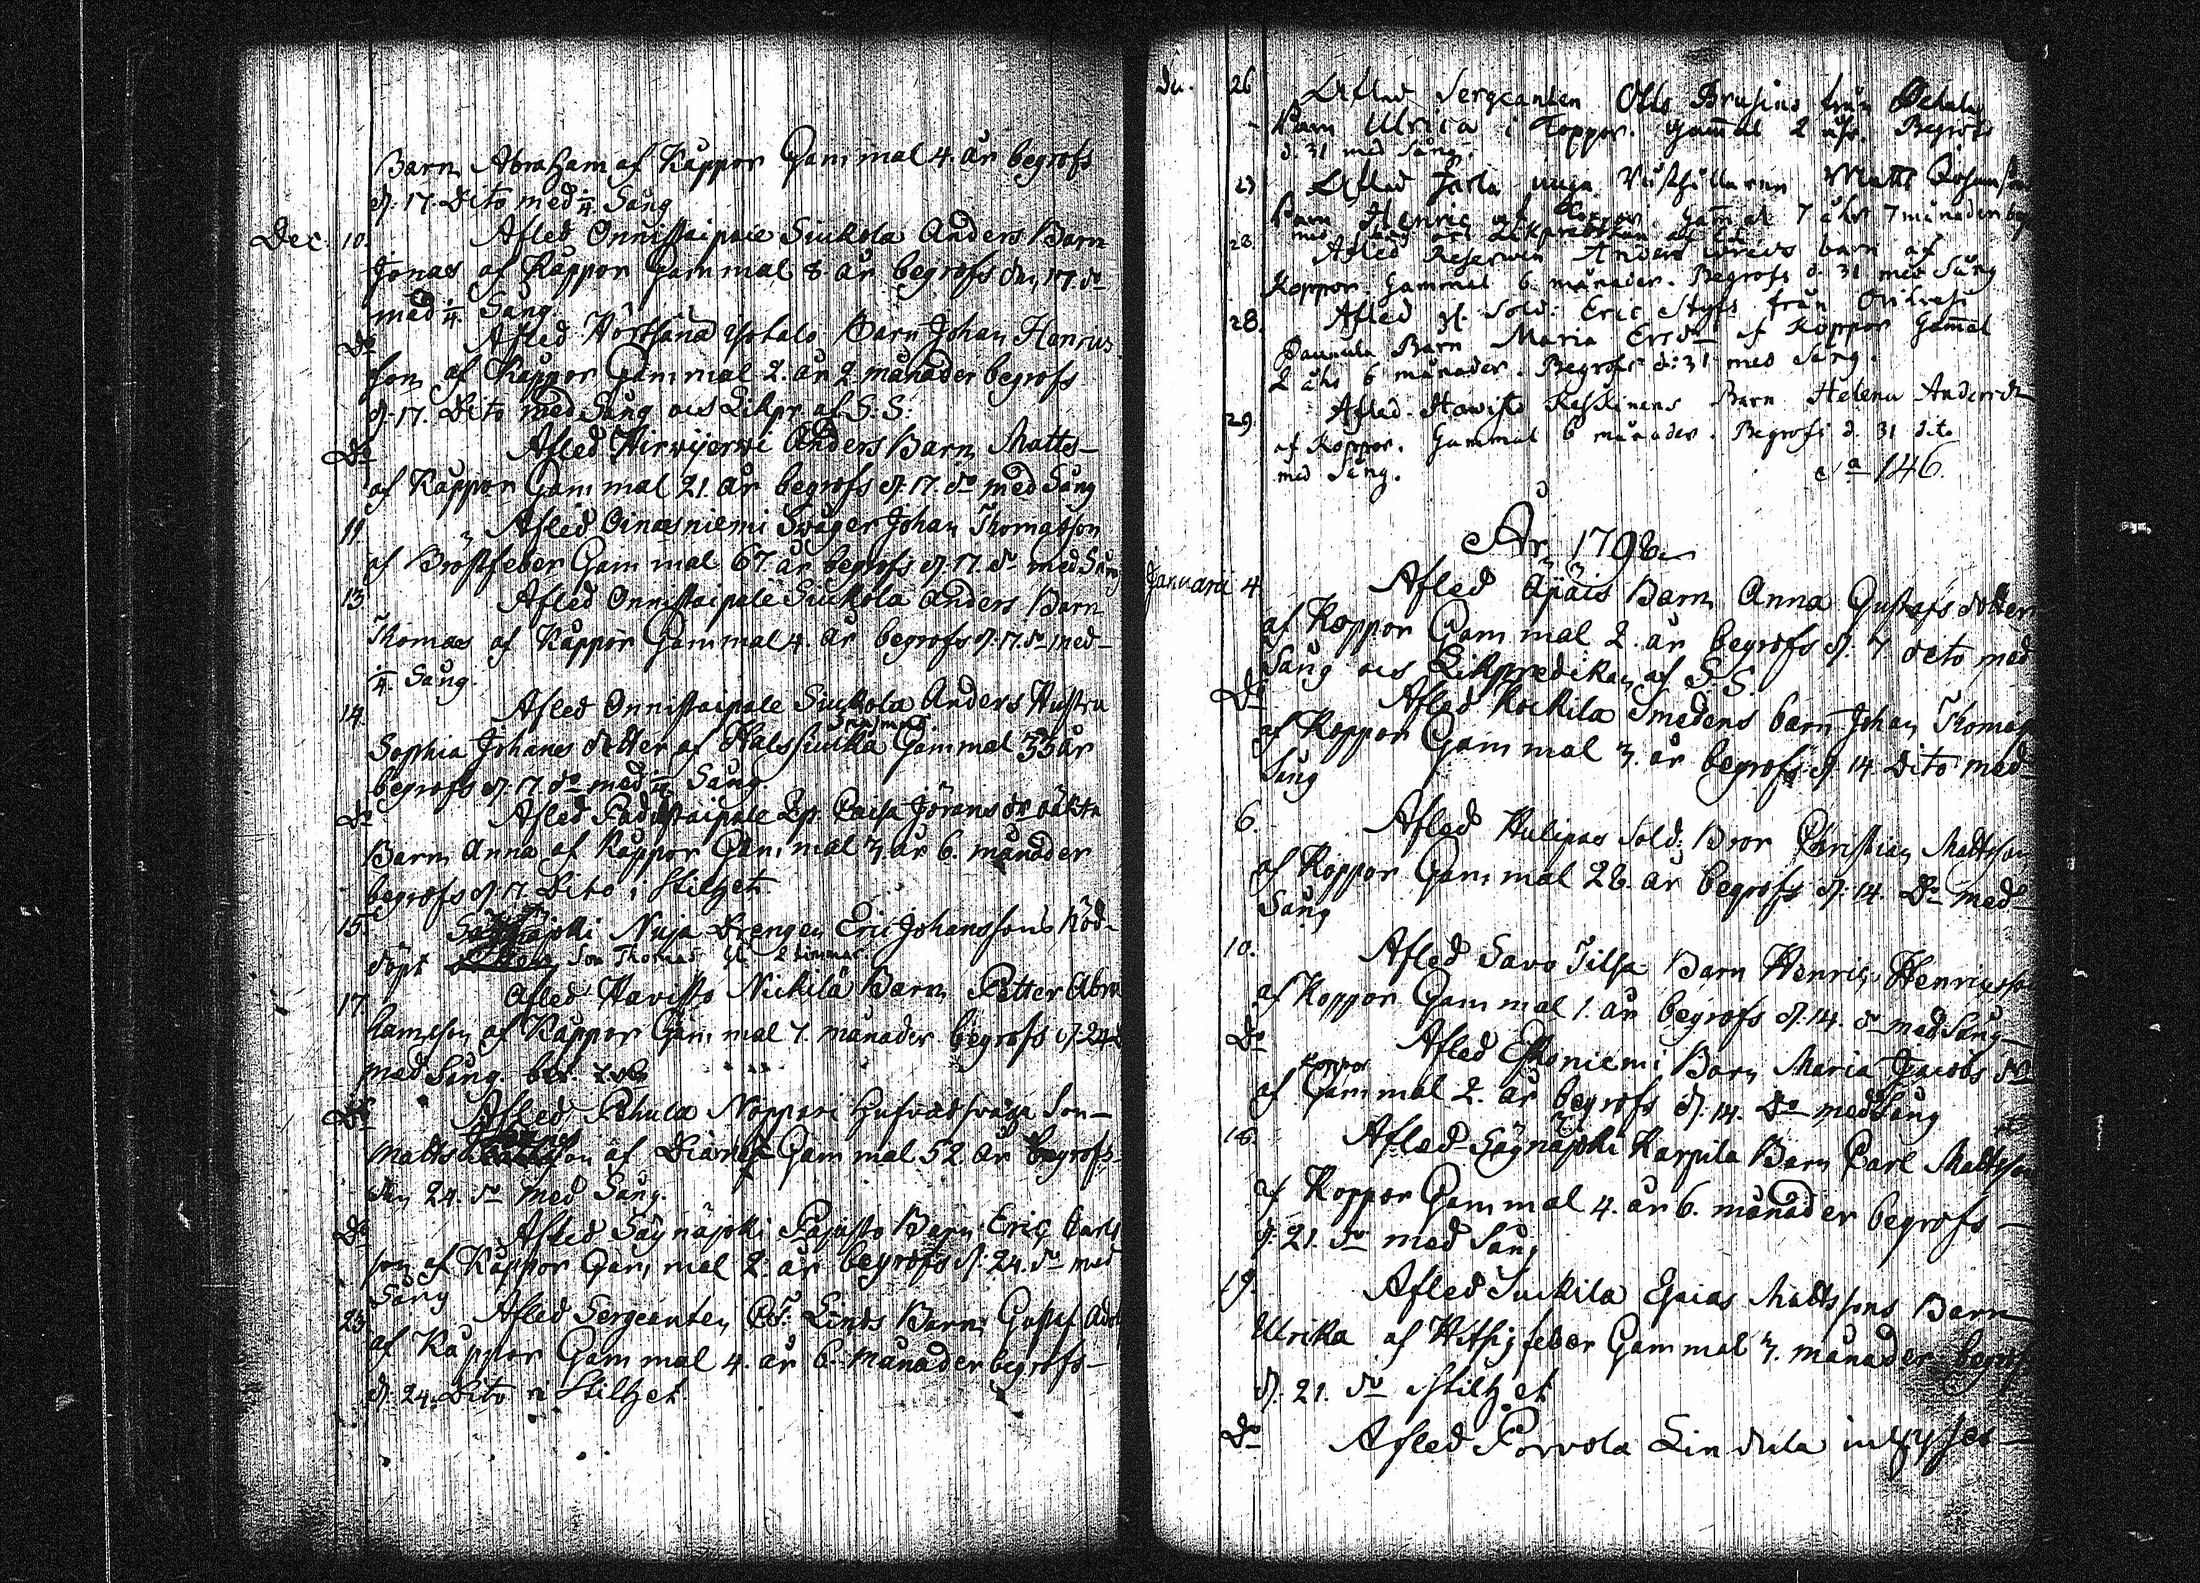 Barn Abraham af Kåppor Gammal 4. år begrofs
d. 17. Dito med 1/4. Sång
Dec. 10. Afled Onnistaipale Siukola Anders Barn
Jonas af Kåppor Gammal 8. år begrofs den 17. do
med 1/4. Sång.
Do Afled Barn Johan Henrics
son af Kåppor Gammal 2. år 2 månader begrofs
d. 17. Dito med Sång och Likpr. af S. S.
Do Afled Hirvijerwi Anders Barn Matts
af Kåppor Gammal 21. år begrofs d. 17. do med Sång
11. Afled Oinasniemi Swåger Johan Thomasson
af Bröstfeber Gammal 67. år begrofs d. 17. do med Sång
13. Afled Onnistaipale Siukola Anders Barn
Thomas af Kåppor Gammal 4. år begrofs d. 17. do med
1/4. Sång.
14. Afled Onnistaipale Siukola Anders Hustru
Sophia Johans dotter af Halssiuka Gammal 33 år
begrofs d. 17 do med 1/4 Sång.
Do Afled Caisa Jörans dr oäkta
Barn Anna af Kåppor Gammal 3. år 6. månader
begrofs d. 17. Dito i Stilhet
15. Nuja Drengen Eric Johanssons Nöd-
döpt Son Thomas Gl. 2 timmar.
17. Afled Havisto Nickilä Barn Petter Abra
hamsson af Kåppor Gammal 7. månader begrofs d. 24
med Sång.
Do Afled Pehula Noppari Son
Matts af Gammal 52 år begrofs
den 24. do med Sång.
Do Afled Säynäjoki Pajusto Barn Eric Carls
son af Kåppor Gammal 2. år begrofs d. 24. do med
Sång
23. Afled Sergeanten Linds Barn Gustaf Adol
af Kåppor Gammal 4. år 6. månader begrofs
d. 24. Dito i Stilhet.
26 Afled Sergeanten Otto Brusins från
Barn Ulrica i Koppor. Gammal 2 åhr. Begrofs
d. 31 med Sång.
Afled Jarla unga Matts Johansson
Barn Henric af Koppor Gammal 7 åhr 7 månader
med Sång och Likpredikan af
28 Afled Anders barn af
Koppor. Gammal 6. månader. Begrofs d. 31 med Sång
28. Afled Sold: Eric Styfs från Orihvesi
Barn Maria Ersdr af Koppor Gammal
2 åhr 6 månader. Begrofs d: 31 med Sång.
29. Afled Hawisto Keskinens Barn Helena Andersdr
af Koppor. Gammal 6 månader. Begrofs d. 31 dito
med Sång.
Sa 146.
År 1798
Januarii 4. Afled Äijäis Barn Anna Gustafs dotter
af Koppor Gammal 2. år begrofs d. 7. dito med
Sång och Likpredikan af S. S.
Do Afled Kockila Smedens barn Johan Thomas
af Koppor Gammal 3. år begrofs d. 14. Dito med
Sång
6. Afled Hulipas Sold: Bror Christian Mattsson
af Koppor Gammal 28. år begrofs d. 14. Do med
Sång
10. Afled Savo Tilsa Barn Henric Henricsson
af Koppor Gammal 1. år begrofs d. 14. do med Sång
Do Afled Eskoniemi Barn Maria Jacobs dr
af Koppor Gammal 2. år begrofs d. 14. Do med Sång
18. Afled Säynäjoki Karpila Barn Carl Mattsson
af Koppor Gammal 4. år 6. månader begrofs
d. 21. do med Sång
19. Afled Suckila Esaias Mattssons Barn
Ulrika af Hitsig feber Gammal 3. månader begrofs
d. 21. do i Stilhet
Do Afled Porvola Lindula inhyses